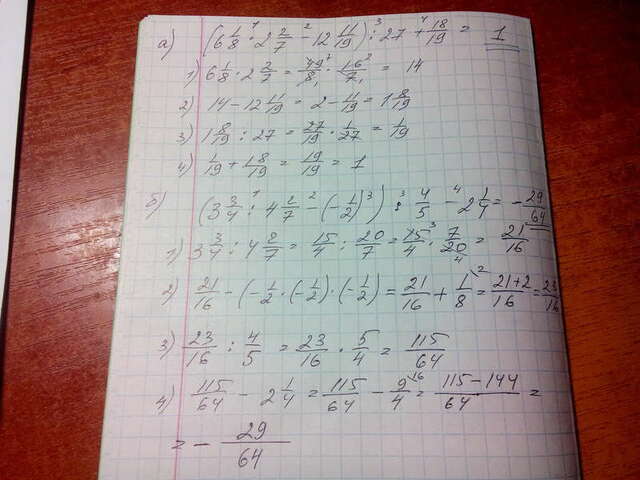 а) (6 1/8 · 2 2/7 - 12 11/19) : 27 + 18/19 = 1
1) 6 1/8 · 2 2/7 = 49/8 · 16/7 = 14
2) 14 - 12 11/19 = 2 - 11/19 = 1 8/19
3) 1 8/19 : 27 = 27/19 · 1/27 = 1/19
4) 1/19 + 18/19 = 19/19 = 1
б) (3 3/4 : 4 2/7 - (-1/2)³) : 4/5 - 2 1/4 = - 29/64
1) 3 3/4 : 4 2/7 = 15/4 : 20/7 = 15/4 · 7/20 = 21/16
2) 21/16 - (-1/2 · (-1/2) · (-1/2) = 21/16 + 1/8 = 21+2/16 = 23/16
3) 23/16 : 4/5 = 23/16 · 5/4 = 115/64
4) 115/64 - 2 1/4 = 115/64 - 9/4 = 115-144/64 =
= - 29/64